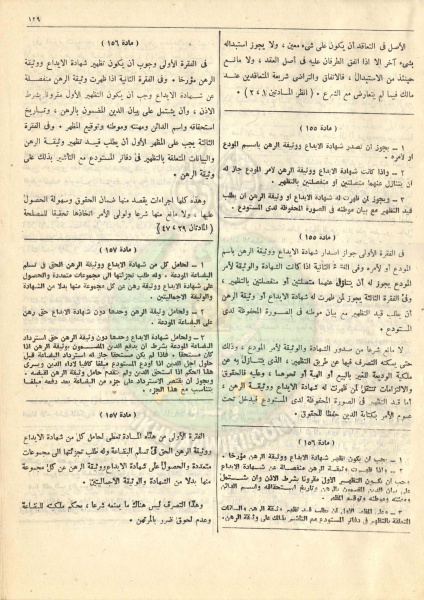 ١٢٩
الأصل فى التعاقد أن يكون على شىء معين ، ولا يجوز استبداله
بشىء آخر الا اذا اتفق الطرفان عليه فى أصل العقد ، ولا مانع
حينئذ من الاستبدال ، فالاتفاق والتراضى شريعة المتعاقدين عند
مالك فيما لم يتعارض مع الشرع • ( انظر المادتين ١ ، ٢ )
( مادة ١٥٥ )
١ – يجوز ان تصدر شهادة الايداع ووثيقة الرهن باسم المودع
او لامره •
٢ – واذا كانت شهادة الايداع ووثيقة الرهن لامر المودع جاز له
ان يتنازل عنهما متصلتين او منفصلتين بالتظهير •
٣ – ويجوز لمن ظهرت له شهادة الايداع او وثيقة الرهن ان يطلب
قيد التظهير مع بيان موطنه فى الصورة المحفوظة لدى المستودع •
( مادة ١٥٥ )
فى الفقرة الأولى جواز اصدار شهادة الايداع ووثيقة الرهن باسم
المودع أو لأمره وفى الفقرة الثانية اذا كانت الشهادة والوثيقة لأمر
المودع جاز له أن يتنازل عنهما متصلتين أو منفصلتين بالتظهير ،
وفى الفقرة الثالثة يجوز لمن ظهرت له شهادة الايداع أو وثيقة الرهن
أن يطلب قيد التظهير مع بيان موطنه فى الصورة المحفوظة لدى
المستودع •
لا مانع شرعا من صدور الشهادة والوثيقة لأمر المودع ، وذلك
حتى يمكنه التصرف فيها عن طريق التظهير ، الذى يتنازل به عن
ملكية الوديعة للغير بالبيع أو الهبة أو نحوهما ، وعليه فالحقوق
والالتزامات تنتقل لمن ظهرت له شهادة الايداع ووثيقة الرهن ،
أما قيد التظهير فى الصورة المحفوظة لدى المستودع فيدخل تحت
عموم الأمر بكتابة الدين حفظا للحقوق •
( مادة ١٥٦ )
١ – يجب ان يكون تظهير شهادة الايداع ووثيقة الرهن مؤرخا •
٢ – واذا ظهرت وثيقة الرهن منفصلة عن شهادة الايداع
وجب ان يكون التظهير الأول مقرونا بشرط الاذن وان يشتمل
على بيان الدين المضمون بالرهن وتاريخ استحقاقه واسم الدائن
ومهنته وموطنه وتوقيع المظهر •
٣ – وعلى المظهر الأول أن يطلب قيد تظهير وثيقة الرهن والبيانات
المتعلقة بالتظهير فى دفاتر المستودع مع التأشير بذلك على وثيقة الرهن •
( مادة ١٥٦ )
فى الفقرة الأولى وجوب أن يكون تظهير شهادة الايداع ووثيقة
الرهن مؤرخا • وفى الفقرة الثانية اذا ظهرت وثيقة الرهن منفصلة
عن شهادة الايداع وجب أن يكون التظهير الأول مقرونا بشرط
الاذن ، وأن يشتمل على بيان الدين المضمون بالرهن ، وتاريخ
استحقاقه واسم الدائن ومهنته وموطنه وتوقيع المظهر • وفى الفقرة
الثالثة يجب على المظهر الأول أن يطلب قيد تظهير وثيقة الرهن
والبيانات المتعلقة بالتظهير فى دفاتر المستودع مع التأشير بذلك على
وثيقة الرهن •
وهذه كلها اجراءات يقصد منها ضمان الحقوق وسهولة الحصول
عليها ، ولا مانع منها شرعا ولولى الأمر اتخاذها تحقيقا للمصلحة
( المادتان ٣٩ ، ٤٧ )
( مادة ١٥٧ )
١ – لحامل كل من شهادة الايداع ووثيقة الرهن الحق فى تسلم
البضاعة المودعة • وله طلب تجزئتها الى مجموعات متعددة والحصول
على شهادة الايداع ووثيقة رهن عن كل مجموعة منها بدلا من الشهادة
والوثيقة الاجماليتين •
٢ – ولحامل وثيقة الرهن وحدها دون شهادة الايداع حق رهن
على البضاعة المودعة •
٣ – ولحامل شهادة الايداع وحدها دون وثيقة الرهن حق استرداد
البضاعة المودعة بشرط ان يدفع الدين المضمون بوثيقة الرهن اذا
كان مستحقا • فاذا لم يكن مستحقا جاز له استرداد البضاعة قبل
حلول اجل الدين اذا اودع المستودع مبلغا كافيا لاداء الدين ويسرى
هذا الحكم اذا استحق الدين ولم يتقدم حامل وثيقة الرهن لقبضه •
ويجوز ان يقتصر الاسترداد على جزء من البضاعة بعد دفع مبلغ
يتناسب مع هذا الجزء •
( مادة ١٥٧ )
الفقرة الأولى من هذه المادة تعطى لحامل كل من شهادة الايداع
ووثيقة الرهن الحق فى تسلم البضاعة وله طلب تجزئتها الى مجموعات
متعددة والحصول على شهادة الايداع ووثيقة الرهن عن كل مجموعة
منها بدلا من الشهادة والوثيقة الأجماليتين •
وهذا التصرف ليس هناك ما يمنعه شرعا ، بحكم ملكيته للبضاعة
وعدم لحوق ضرر بالمرتهن •